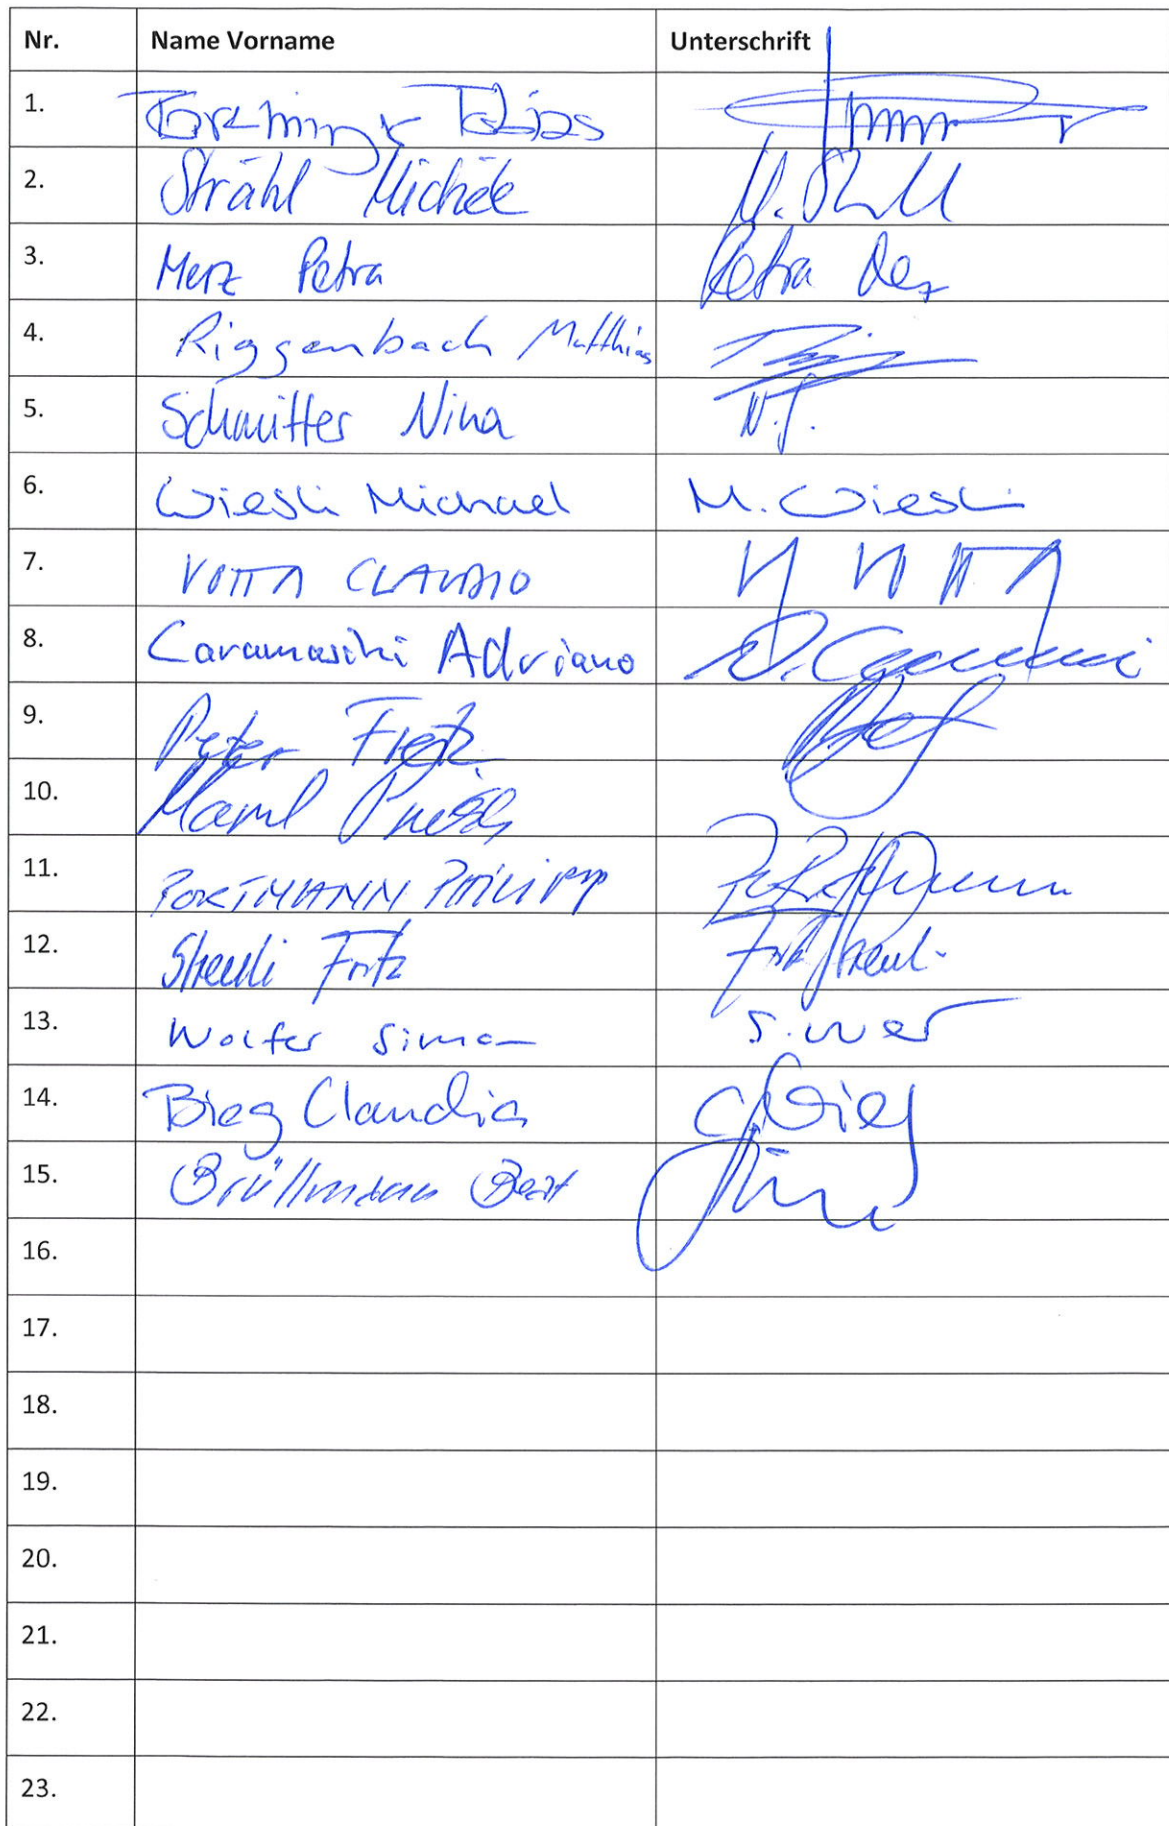 Nr. Name Vorname Unterschrift
1. Tobias
2. Strähl Michèle M. Strähl
3. Merz Petra Petra Merz
4. Riggenbach Matthias
5. Schmitter Nina N.S.
6. Wiesli Michael M. Wiesli
7. VOTTA CLAUDIO VOTTA
8. Caramaschi Adriano
9. Peter Fretz
10.
11. PORTMANN PHILIPP
12. Streuli Fritz Fritz Streuli
13. Wolfer Simon
14. Bieg Claudia C. Bieg
15. Brüllmann Beat
16.
17.
18.
19.
20.
21.
22.
23.